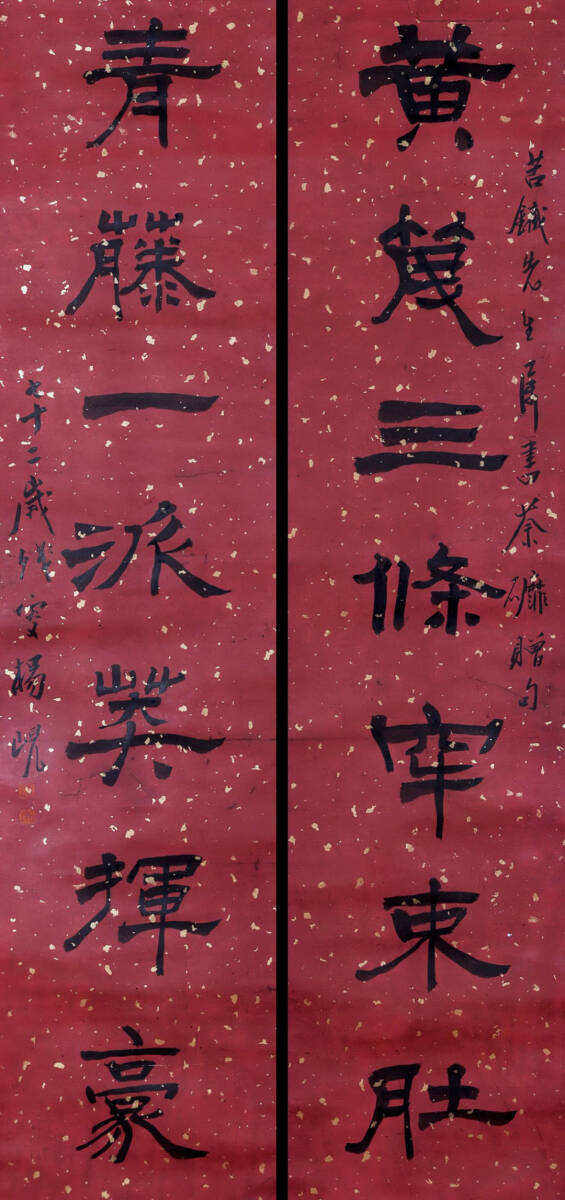 黃篾三條牢束肚
苦鐵先生屬書茶贈句
青藤一派笑揮豪
七十二歲叟楊峴